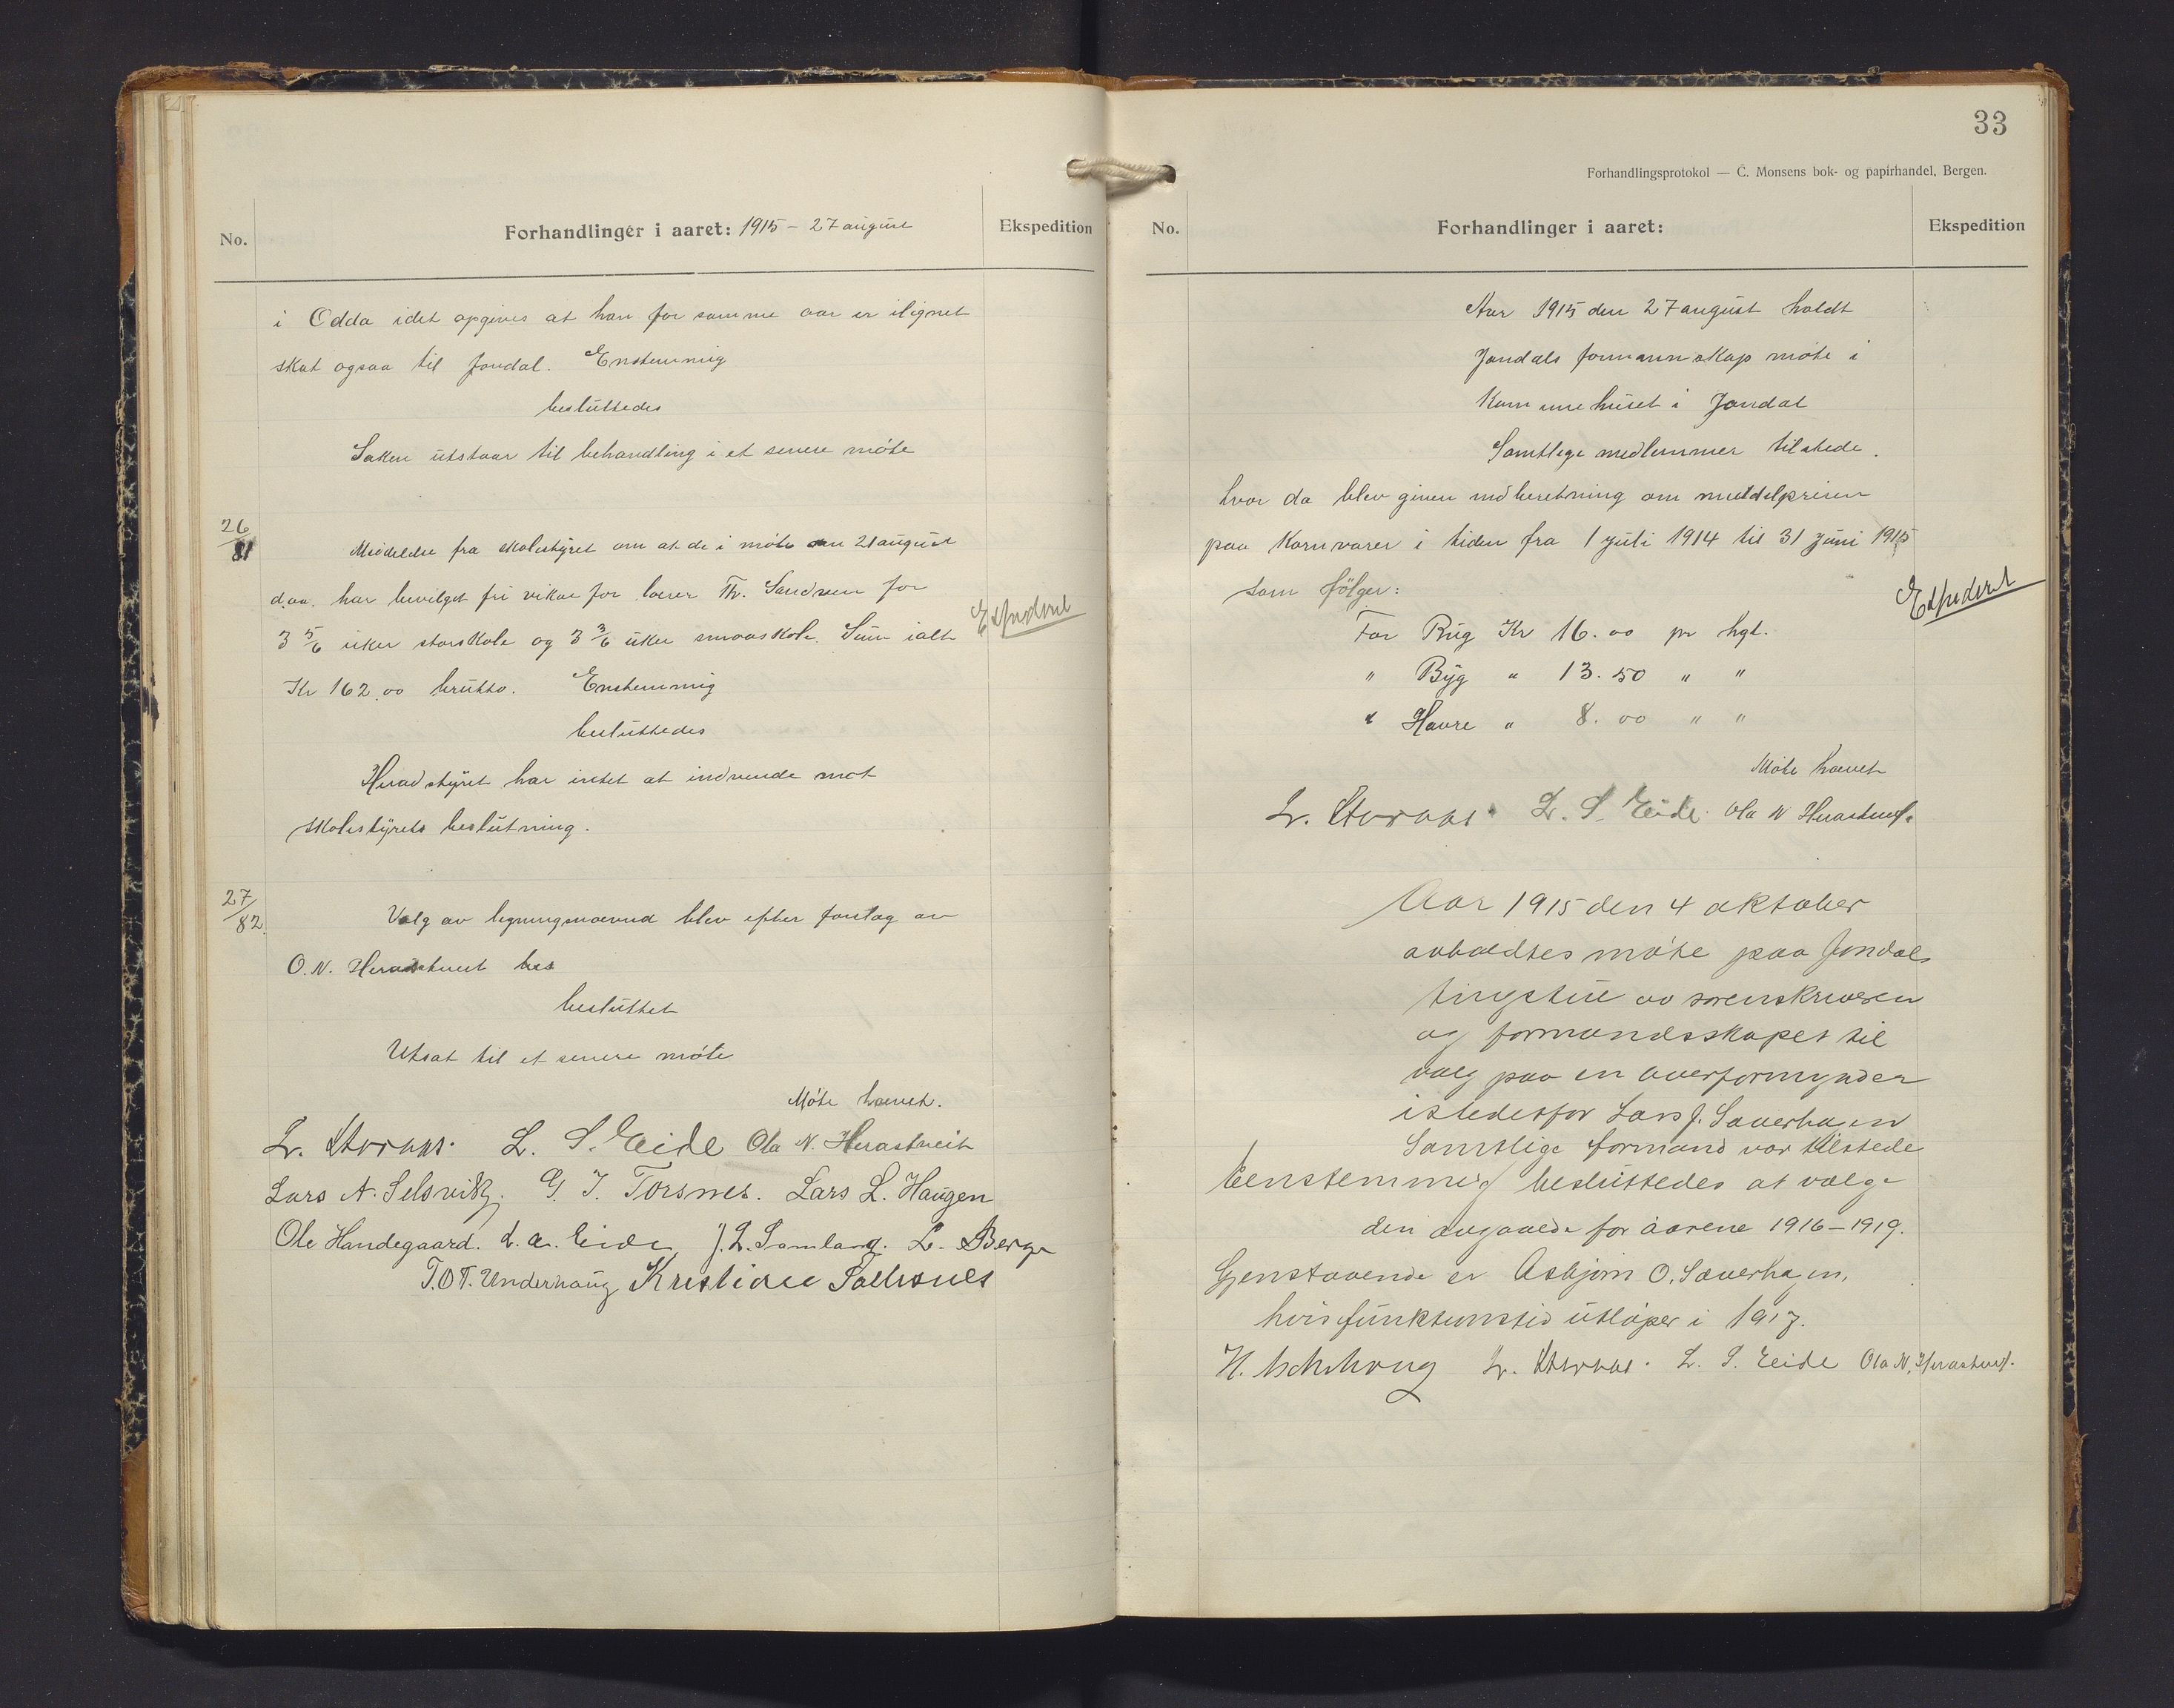 No.
Forhandlinger i aaret: 1915 – 27 august
Ekspedition
i Odda idet opgives at han for samme aar er ilignet
skat ogsaa til Jondal. Enstemmig
besluttedes
Saken utstaar til behandling i et senere möte
26/81
Meddelelse fra skolestyret om at de i möte den 21 august
d.aa. har bevilget fri vikar for lærer Th. Sandven for
3 5/6 uker storskole og 3 3/6 uker smaaskole. Sum ialt
Ekspederet
Kr 162.00 brutto. Enstemmig
besluttedes
Heradstyret har intet at indvende mot
skolestyrets beslutning.
27/82.
Valg av ligningsnævnd blev efter forslag av
O. N. Herastveit bes
besluttet
Utsat til et senere möte
Möte hævet.
L. S. Eide Ola N. Herastveit
Lars A. Selsvik. G. J. Torsnes. Lars L. Haugen
Ole Handegaard. L. A. Eide J. L. Samland. L. Berge
T. O. T. Underhaug Kristian Solesnes
33
Forhandlingsprotokol — C. Monsens bok- og papirhandel, Bergen.
No.
Forhandlinger i aaret:
Ekspedition
Aar 1915 den 27 august holdt
Jondals formannskap möte i
Kommunehuset i Jondal
Samtlege medlemmer tilstede.
hvor da blev given indberetning om middelprisen
paa Kornvarer i tiden fra 1 juli 1914 til 31 juni 1915
som fölger:
Ekspederet
For Rug Kr 16.00 pr hgl.
" Byg " 13.50 " "
" Havre " 8.00 " "
Möte hævet
L. S. Eide. Ola N Herastveit.
Aar 1915 den 4 oktober
avholdtes möte paa Jondals
tingstue av sorenskriveren
og formandsskapet til
valg paa en overformynder
istedetfor Lars J. Sæverhagen
Samtlige formænd var tilstede
Eenstemmig besluttedes at vælge
den avgaaede for aarene 1916–1919.
Gjenstaaende er Asbjörn O. Sæverhagen,
hvis funktionstid utlöper i 1917.
L. S. Eide Ola N. Herastveit.